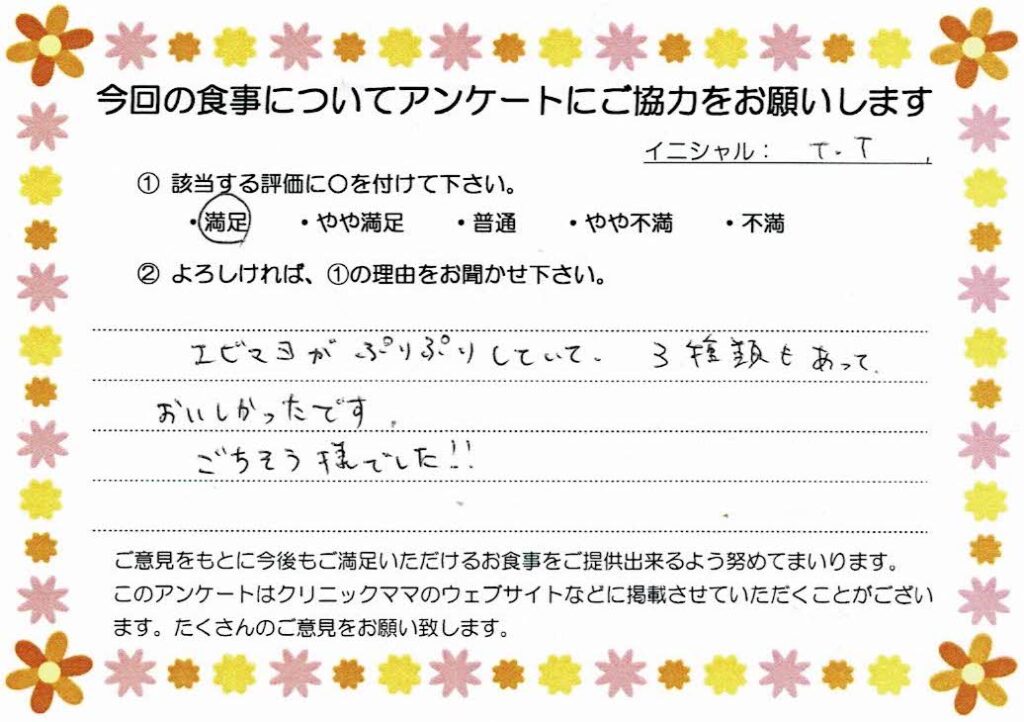 今回の食事についてアンケートにご協力をお願いします
イニシャル： T.T
① 該当する評価に〇を付けて下さい。
・満足 ・やや満足 ・普通 ・やや不満 ・不満
② よろしければ、①の理由をお聞かせ下さい。
エビマヨがぷりぷりしていて、3種類もあって、
おいしかったです。
ごちそう様でした!!
ご意見をもとに今後もご満足いただけるお食事をご提供出来るよう努めてまいります。
このアンケートはクリニックママのウェブサイトなどに掲載させていただくことがござい
ます。たくさんのご意見をお願い致します。